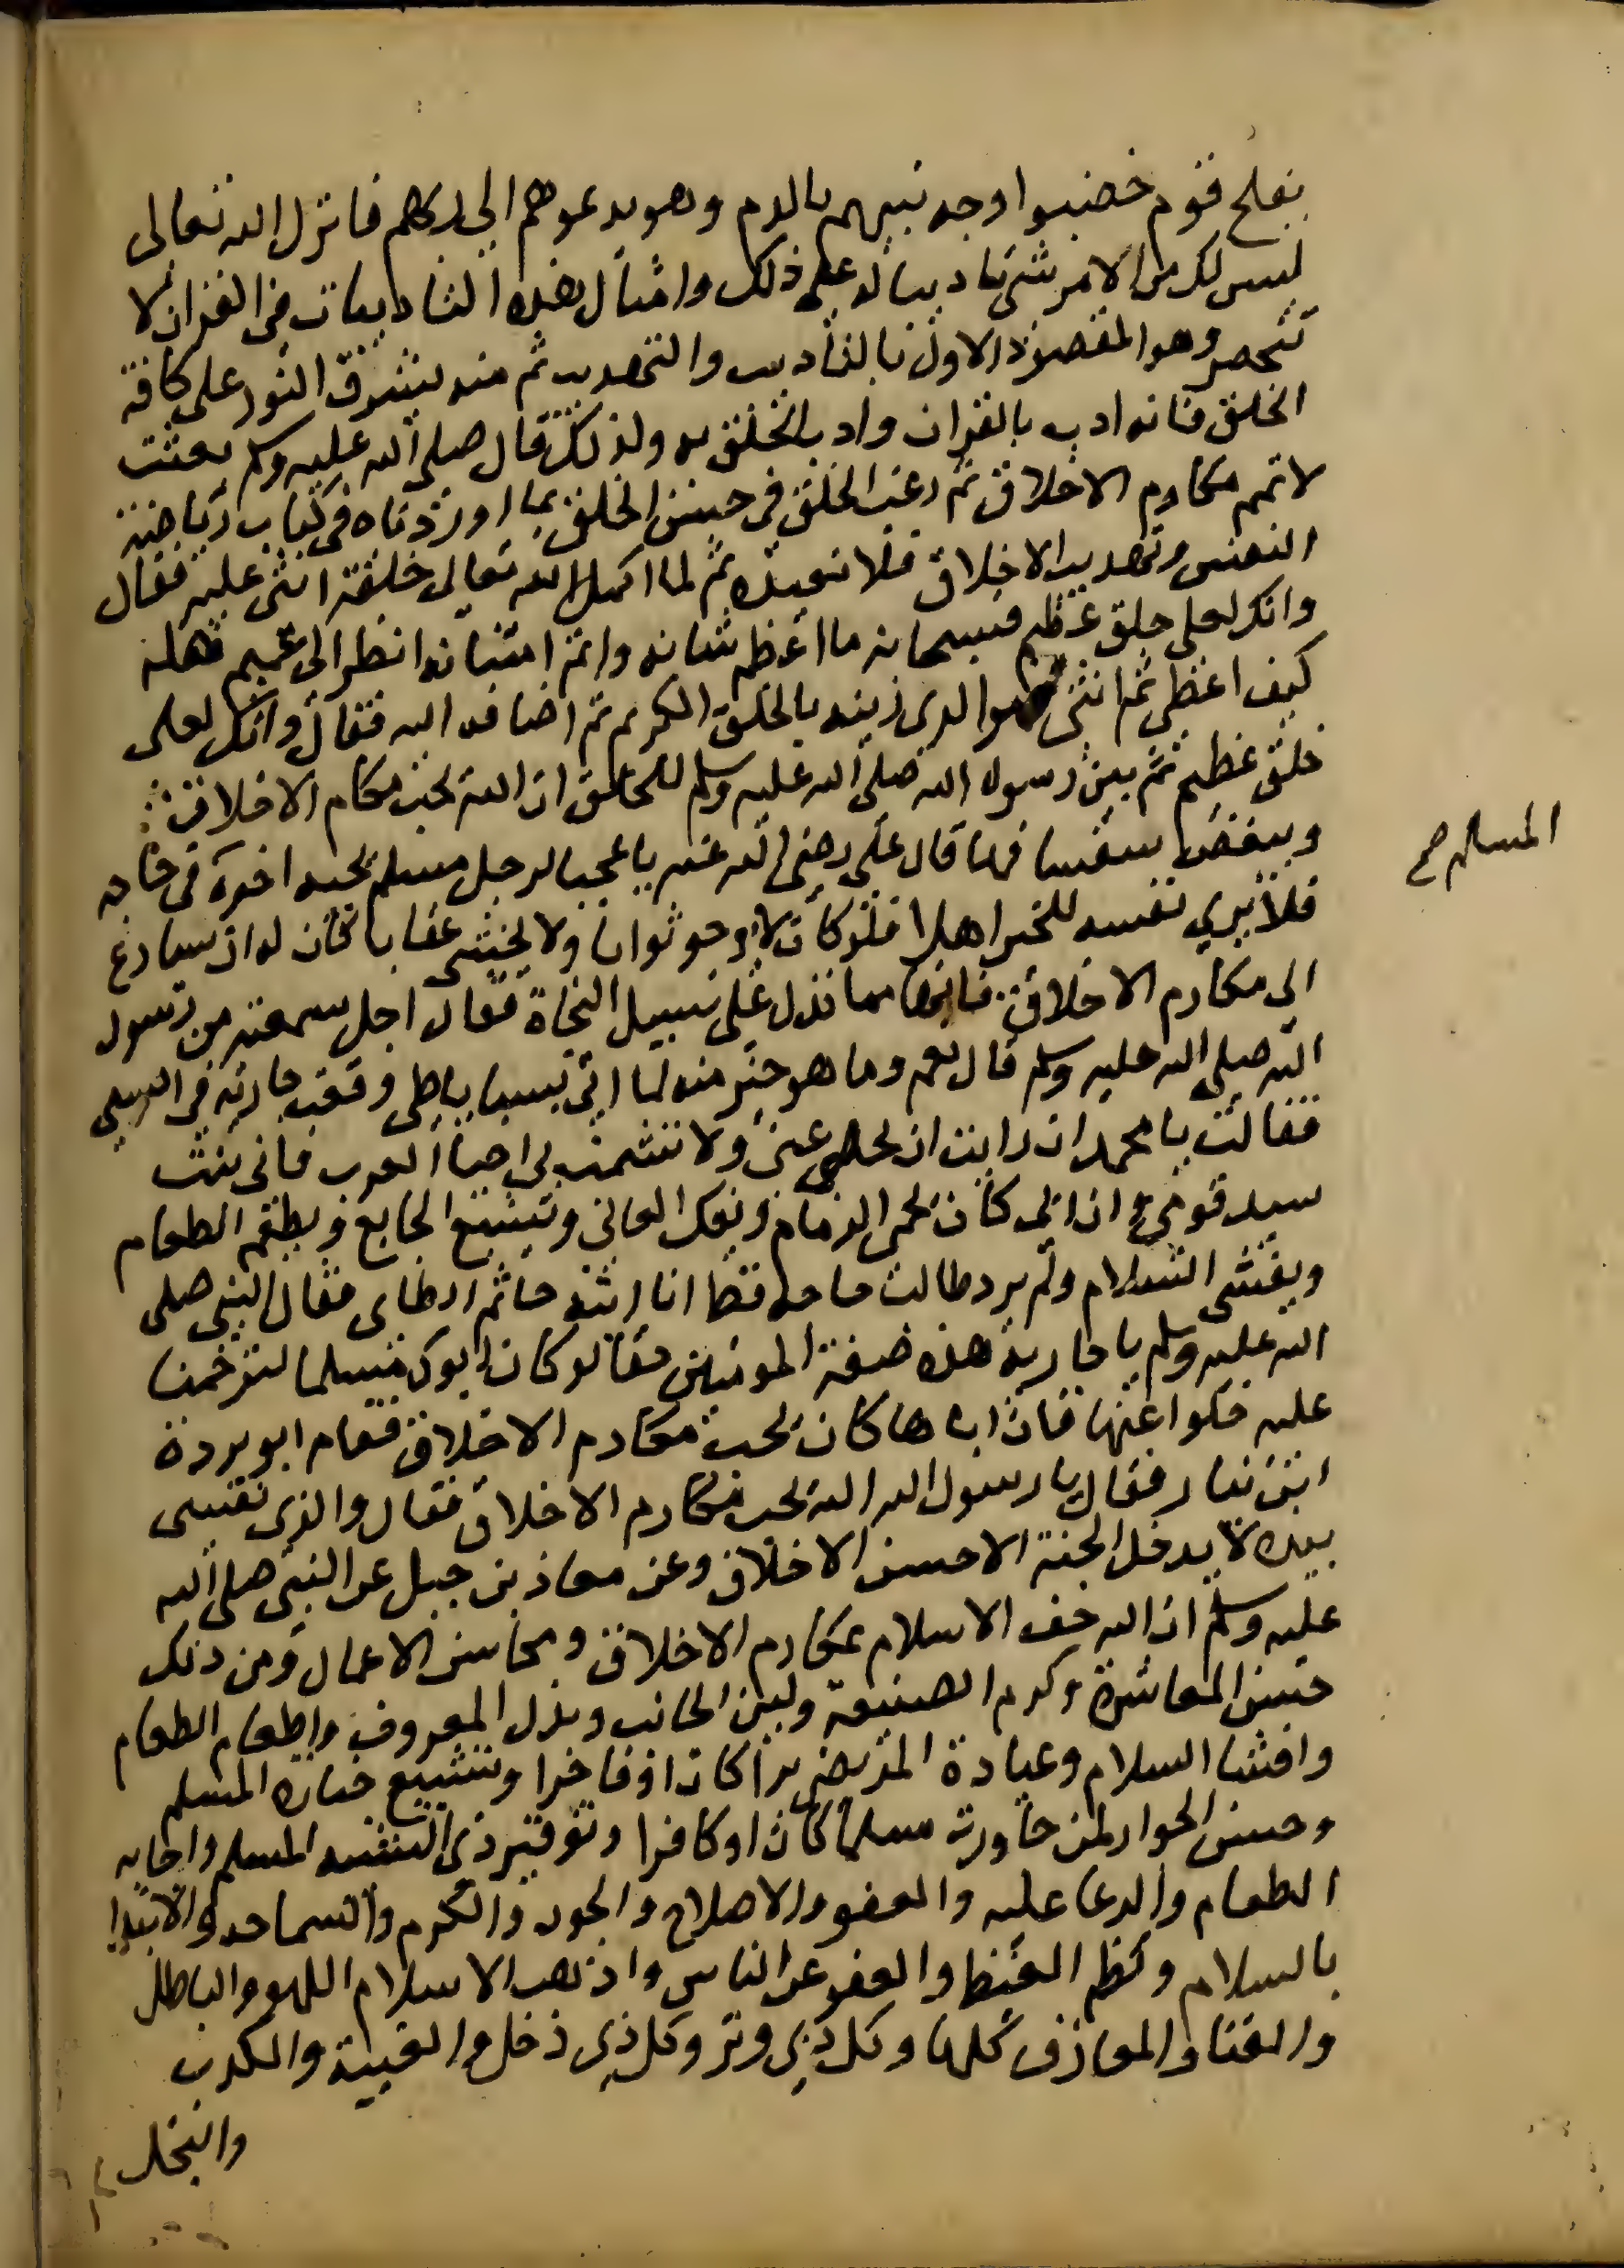 يفلح قوم خضبوا وجه نبيهم بالدم وهو يدعوهم الى ربهم فانزل الله تعالى
ليس لك من الامر شى تاديبا له على ذلك وامثال هذه التاديبات فى القران لا
تنحصر وهو المقصود الاول بالتاديب والتهذيب ثم منه يشرق النور على كافة
الخلق فانه ادب بالقران وادب الخلق به ولذلك قال صلى الله عليه وسلم بعثت
لاتمم مكارم الاخلاق ثم رغب الخلق فى حسن الخلق بما اوردناه فى كتاب رياضة
النفس وتهذيب الاخلاق فلا نعيده ثم لما اكمل الله تعالى خلقه اثنى عليه فقال
وانك لعلى خلق عظيم فسبحانه ما اعظم شانه واتم امتنانه انظر الى عميم فضله
كيف اعطى ثم اثنى فهو الذى زينه بالخلق الكريم ثم اضافه اليه فقال وانك لعلى
خلق عظيم ثم بين رسول الله صلى الله عليه وسلم للخلق ان الله يحب مكارم الاخلاق
ويبغض سفسافها قال على رضى الله عنه يا عجبا لرجل مسلم يجيه اخوه فى حاجه
المسلم صح
فلا يري نفسه للخير اهلا فلو كان لا يرجو ثوابا ولا يخشى عقابا لكان له ان يسارع
الى مكارم الاخلاق فانها مما تدل على سبيل النجاة فقال اجل سمعته من رسول
الله صلى الله عليه وسلم قال نعم وما هو خير منه لما اتى بسبايا طى وقفت جارية فى السبى
فقالت يا محمد ان رايت ان تخلى عنى ولا تشمت بي احياء العرب فانى بنت
سيد قومي وان ابى كان يحمى الذمام ويفك العانى ويشبع الجايع ويطعم الطعام
ويفشى السلام ولم يرد طالب حاجه قط انا ابنة حاتم الطاى فقال النبى صلى
الله عليه وسلم يا جارية هذه صفة المومنين حقا لو كان ابوك مسلما لترحمنا
عليه خلوا عنها فان اباها كان يحب مكارم الاخلاق فقام ابو بردة
ابن نيار فقال يا رسول الله الله يحب مكارم الاخلاق فقال والذى نفسى
بيده لا يدخل الجنة الا حسن الاخلاق وعن معاذ بن جبل عن النبى صلى الله
عليه وسلم ان الله حف الاسلام بمكارم الاخلاق ومحاسن الاعمال ومن ذلك
حسن المعاشرة وكرم الصنيعة ولين الجانب وبذل المعروف واطعام الطعام
وافشا السلام وعيادة المريض برا كان او فاجرا وتشييع جنازه المسلم
وحسن الجوار لمن جاورت مسلما كان او كافرا وتوقير ذى الشيبه المسلم واجابه
الطعام والدعا عليه والعفو والاصلاح والجود والكرم والسماحه والابتدا
بالسلام وكظم الغيظ والعفو عن الناس واذهب الاسلام اللهو والباطل
والغنا والمعازف كلها وكل ذي وتر وكل ذى ذخل والغيبة والكذب
والبخل